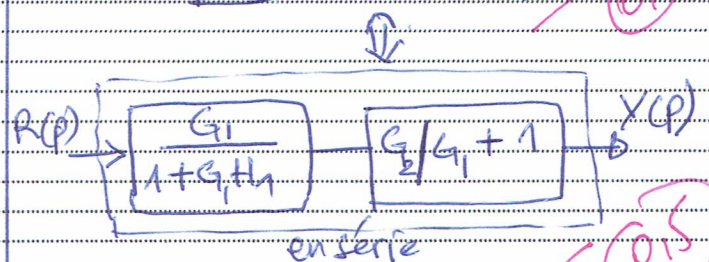 R(p) G1 / 1+G1H1 G2/G1 + 1 Y(p)
en série
0,5